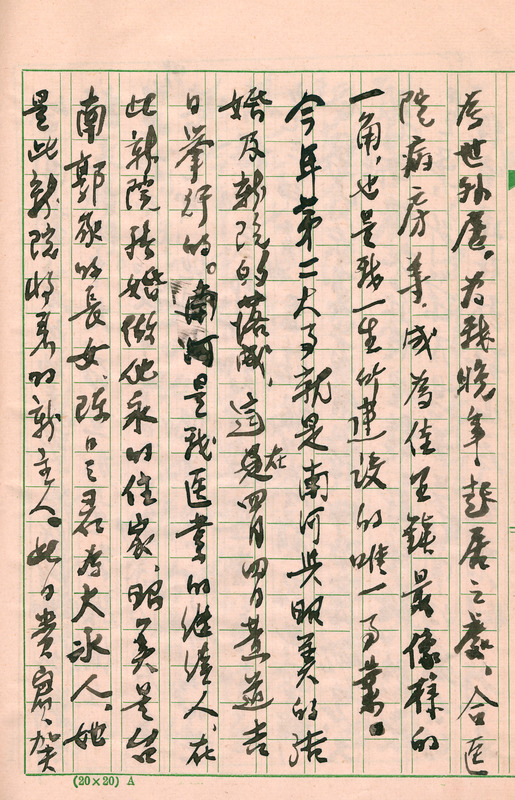 為世外屋,為我晚年起居之處。合医
院病房等,成為佳里鎮最像樣的
一角,也是我一生所建設的唯一事業。
今年第二大事就是南河與昭美的結
婚及新院的落成,這是在四月四日黃道吉
日舉行的。南河是我医業的继續人,在
此新院結婚做他永的住家,昭美是台
南郭家的長女,陳日三君為大冰人,她
是此新院將来的新主人。此日貴賓賀
(20×20) A